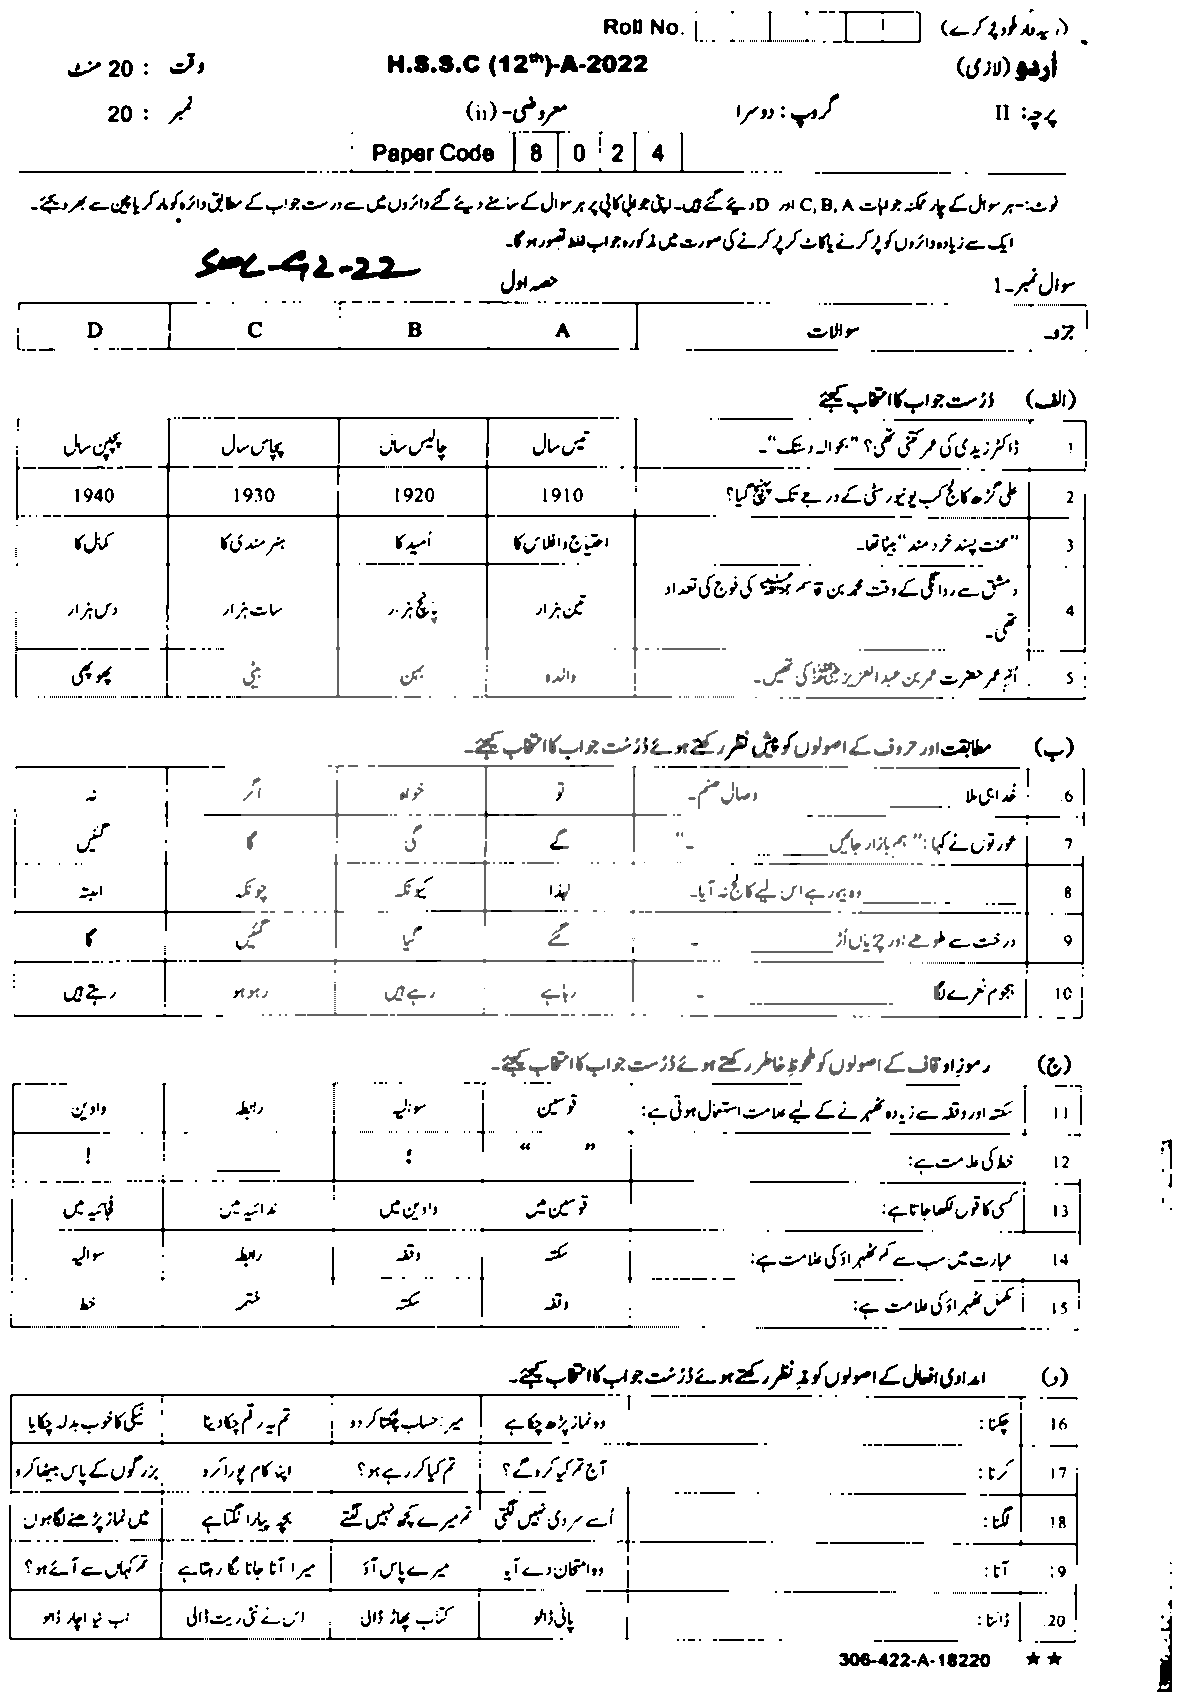 Roll No. (امیدوار خود پُر کرے)
اُردو (لازمی) H.S.S.C (12th)-A-2022 وقت : 20 منٹ
پرچہ: II گروپ : دوسرا معروضی-(ii) نمبر : 20
Paper Code 8 0 2 4
نوٹ:- ہر سوال کے چار ممکنہ جوابات C, B, A اور D دیئے گئے ہیں۔ اپنی جوابی کاپی پر ہر سوال کے سامنے دیئے گئے دائروں میں سے درست جواب کے مطابق دائرہ کو مارکر یا پین سے بھر دیجئے۔
ایک سے زیادہ دائروں کو پُر کرنے یا کاٹ کر پُر کرنے کی صورت میں مذکورہ جواب غلط تصور ہو گا۔
G2-22
سوال نمبر 1۔ حصہ اول
جزو سوالات A B C D
(الف) دُرست جواب کا انتخاب کیجئے
1 ڈاکٹر زیدی کی عمر کتنی تھی؟ "بحوالہ دستک"۔ تیس سال چالیس سال پچاس سال پچپن سال
2 علی گڑھ کالج کب یونیورسٹی کے درجے تک پہنچ گیا؟ 1910 1920 1930 1940
3 "محنت پسند خرد مند" بیٹا تھا۔ احتیاج و افلاس کا اُمید کا ہنر مندی کا کمال کا
4 دمشق سے روانگی کے وقت محمد بن قاسم کی فوج کی تعداد تھی۔ تین ہزار پانچ ہزار سات ہزار دس ہزار
5 اُمِ عمر حضرت عمر بن عبدالعزیز کی تھیں۔ والدہ بہن بیٹی پھوپھی
(ب) مطابقت اور حروف کے اصولوں کو پیش نظر رکھتے ہوئے دُرست جواب کا انتخاب کیجئے۔
6 خدا ہی ملا ______ وصالِ صنم۔ تو خواہ اگر نہ
7 عورتوں نے کہا: "ہم بازار جائیں ______۔" گے گی گا گئیں
8 ______ وہ بیمار ہے اس لیے کالج نہ آیا۔ لہٰذا کیونکہ چونکہ البتہ
9 درخت سے طوطے اور چڑیاں اُڑ ______۔ گئے گیا گئیں گا
10 ہجوم نعرے لگا ______۔ رہا ہے رہے ہیں رہو ہو رہتے ہیں
(ج) رموزِ اوقاف کے اصولوں کو ملحوظِ خاطر رکھتے ہوئے دُرست جواب کا انتخاب کیجئے۔
11 سکتہ اور وقفہ سے زیادہ ٹھہرنے کے لیے علامت استعمال ہوتی ہے: قوسین سوالیہ رابطہ واوین
12 خط کی علامت ہے: " " ؛ ______ !
13 کسی کا قول لکھا جاتا ہے: قوسین میں واوین میں ندائیہ میں فجائیہ میں
14 عبارت میں سب سے کم ٹھہراؤ کی علامت ہے: سکتہ وقفہ رابطہ سوالیہ
15 مکمل ٹھہراؤ کی علامت ہے: وقفہ سکتہ ختمہ خط
(د) امدادی افعال کے اصولوں کو مدِنظر رکھتے ہوئے دُرست جواب کا انتخاب کیجئے۔
16 چکنا: وہ نماز پڑھ چکا ہے میرا حساب چکتا کر دو تم یہ رقم چکا دینا نیکی کا خوب بدلہ چکایا
17 کرنا: آج تم کیا کرو گے؟ تم کیا کر رہے ہو؟ اپنا کام پورا کرو بزرگوں کے پاس بیٹھا کرو
18 لگنا: اُسے سردی نہیں لگتی تم میرے کچھ نہیں لگتے بچہ پیارا لگتا ہے میں نماز پڑھنے لگا ہوں
19 آنا: وہ امتحان دے آیا میرے پاس آؤ میرا آنا جانا لگا رہتا ہے تم کہاں سے آئے ہو؟
20 ڈالنا: پانی ڈالو کتاب پھاڑ ڈالی اس نے نئی ریت ڈالی اب نیا اچار ڈالو
306-422-A-18220 ★★